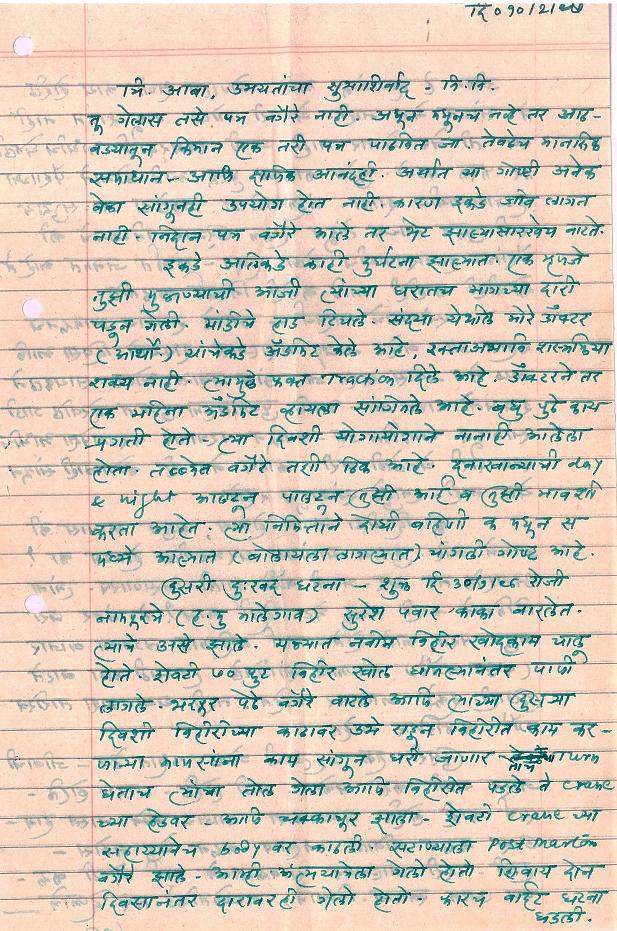 दि ०१०/2/
चि. आबा, उभयतांचा शुभाशिर्वाद - वि.वि.
तू गेलास तसे पत्र वगैरे नाही. अधून मधूनच नव्हे तर आठ-
वड्यातून किमान एक तरी पत्र पाठवित जा तेवढेच मानसिक
समाधान - आणि आनंदही. अर्थात या गोष्टी अनेक
वेळा सांगूनही उपयोग होत नाही. कारण इकडे जीव लागत
नाही - निदान पत्र वगैरे आले तर भेट झाल्यासारखेच वाटते.
इकडे अलिकडे काही दुर्घटना झाल्यात. एक म्हणजे
तुझी आजी त्यांच्या घरातच मागच्या दारी
पडून गेली. मांडीचे हाड पिचले. संध्या येथील मोरे डॉक्टर
(आर्थो.) यांचेकडे अ‍ॅडमिट केले आहे, रक्ताअभावी शस्त्रक्रिया
शक्य नाही. त्यामुळे फक्त दिले आहे. डॉक्टरने तर
एक महिना अ‍ॅडमिट व्हायला सांगितले आहे. बघू पुढे काय
प्रगती होते - त्या दिवशी योगायोगाने नानाही आलेला
होता. तब्बेत वगैरे तशी ठिक आहे. दवाखान्याची day
& night आलटून पालटून तुझी आई व तुझी मावशी
करता आहेत. त्या निमित्ताने दोघी बहिणी क मधून स
मध्ये आल्यात (बोलायला लागल्यात) चांगली गोष्ट आहे.
दुसरी दुःखद घटना - शुक्र दि ३०/१/ रोजी
(ह. मु मालेगाव) सुरेश पवार काका वारलेत.
त्याचे असे झाले. मळ्यात नवीन विहिर खोदकाम चालू
होते शेवटी ७० फूट विहिर खोल पाणी
लागले. भरपूर पेढे वगैरे वाटले आणि त्याच्या दुसऱ्या
दिवशी विहिरीच्या काठावर उभे राहून विहिरीत काम कर-
णाऱ्या काम सांगून घरी जाणार तोच turn
घेताच त्यांचा तोल गेला आणि विहिरीत पडले ते crane
च्या हेडवर - आणि चक्काचूर झाला - शेवटी crane च्या
सहाय्यानेच body वर काढली. सटाण्याला Post martom
वगैरे झाले - आम्ही अंत्ययात्रेला गेलो होतो - शिवाय दोन
दिवसानंतर दारावरही गेलो होतो. फारच वाईट घटना
घडली.